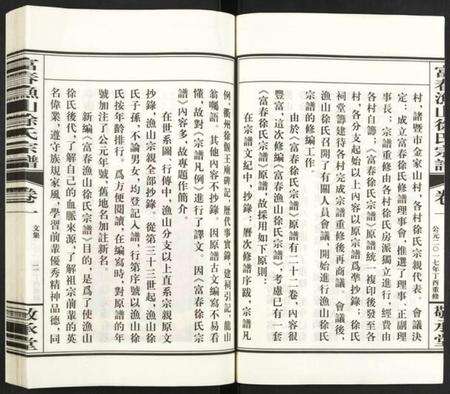 富春漁山徐氏宗譜
卷
公元二〇一七年丁酉重修
敬承堂
村，諸暨市金家山村，各村徐氏宗親代表，會議決
定：成立富春徐氏修譜理事會，推選了理事、正副理
事長；宗譜重修由各村徐氏房派獨立進行，經費由
各村自籌；《富春徐氏宗譜》原譜統一複印後發至各
村，各分支起始以上內容以原宗譜爲準抄錄；徐氏
祠堂籌建待各村完成宗譜重修後再商議。會議後，
漁山徐氏召開了有關人員會議，開始進行漁山徐氏
宗譜的修編工作。
由於《富春徐氏宗譜》原譜有二十二卷，內容很
豐富，這次修編《富春漁山徐氏宗譜》考慮已有一套
《富春徐氏宗譜》原譜，故採用如下原則：
在宗譜文紀中，抄錄了歷次修譜序跋，宗譜凡
例，衢州徐偃王廟碑記，歷代事實錄，建祠引記，龍山
翁囑語，其他內容不抄錄。因原譜古文編寫不易看
懂，故對《宗譜凡例》進行了譯文，因《富春徐氏宗
譜》內容多，故專題作簡介。
在世系圖、行傳中，漁山分支以上直系宗親原文
抄錄，漁山宗親全部抄錄。從第三十三世起，漁山徐
氏子孫，不論男女，均登記入譜，行第序號以漁山徐
氏按年齡排行，爲方便閱讀，在編寫時，對原譜的年
號加注了公元年號，舊地名加注新名。
新編《富春漁山徐氏宗譜》目的，是爲了使漁山
徐氏後代，了解自己的血脈來源，了解祖宗前輩的英
名偉業，遵守族規家風，學習前輩優秀精神品德，同
富春漁山徐氏宗譜
卷一
文集
敬承堂